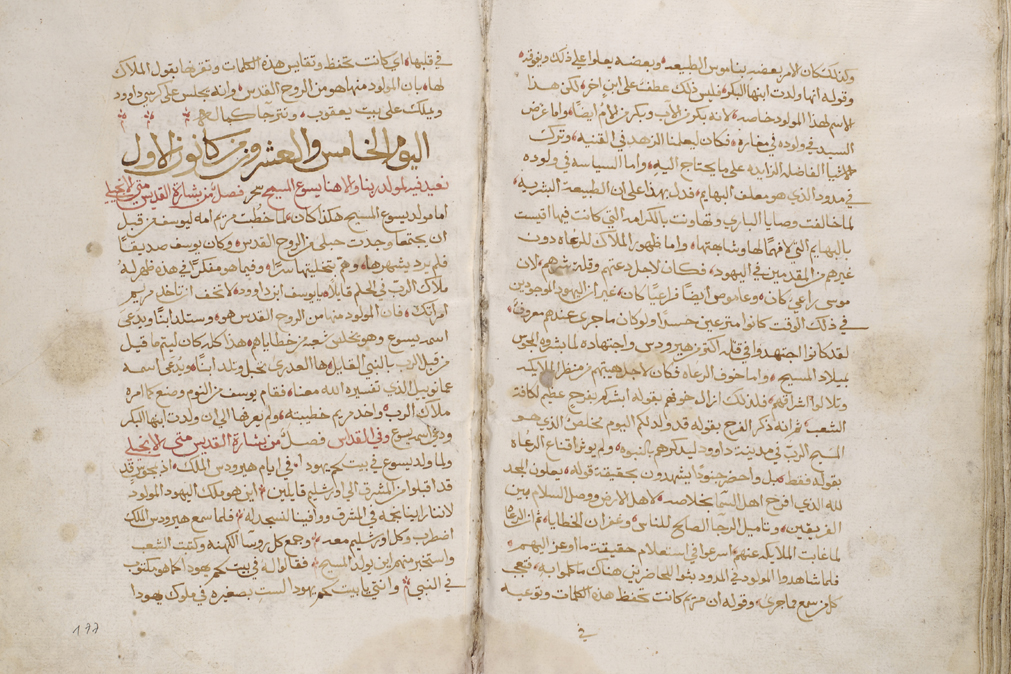 ولذلك كان الامر بعضه بناموس الطبيعه وبعضه يعلوا على ذلك ويفوقه
وقوله انها ولدت ابنها البكر فليس ذلك عطف على ابن اخر لكن هذا
الاسم لهذا المولود خاصه لانه بكر من الاب وبكر من الام ايضا واما غرض
السيد في ولوده في مغاره فكان ليعلمنا الزهد في القنيه وترك
الاشيا الفاضله الزايده على ما يحتاج اليه واما السياسه في ولوده
في مدود الذي هو معلف البهايم فدل بهذا على ان الطبيعه البشريه
لما خالفت وصايا الباري وتهاونت بالكرامه التي كانت فيها اقيست
بالبهايم التي لا فهم لها وشابهتها واما ظهور الملاك للرعاه دون
غيرهم من المقدمين في اليهود فكان لاجل دعتهم وقلة شرهم لان
موسى راعي كان وعاموص ايضا راعيا كان غير ان اليهود الموجودين
في ذلك الوقت كانوا مترعين حسدا ولو كان ما جرى عندهم معروف
لقد كانوا اجتهدوا في قتله اكثر من هيرودس واجتهاده لما بشروه المجوس
بميلاد المسيح واما خوف الرعاه فكان لاجل هيبتهم من منظر الملايكه
وتلالوا اشراقهم فلذلك ازال خوفهم بقوله ابشركم بفرح عظيم لكافة
الشعب ثم انه ذكر الفرح بقوله قد ولد لكم اليوم مخلص الذي هو
المسيح الرب في مدينة داوود ليذكرهم بالنبوه ولم يوثر اقناع الرعاه
بقوله فقط بل واحضر جنودا يشهدون بحقيقة قوله يعلون المجد
لله الذي افرح اهل السما بخلاصه لاهل الارض ووصل السلام بين
الفريقين وتاميل الرجا الصالح للناس وغفران الخطايا ثم ان الرعاه
لما غابت الملايكه عنهم اسرعوا في استعلام حقيقة ما اوعز اليهم
فلما شاهدوا المولود في المدود بثوا للحاضرين هناك ما كلموا به فتعجب
كل من سمع مما جرى وقوله ان مريم كانت تحفظ هذه الكلمات وتوعيه
في
في قلبها اي كانت تحفظ وتقايس هذه الكلمات وتفرضها بقول الملاك
لها بان المولود منها هو من الروح القدس وانه يجلس على كرسي داوود
ويملك على بيت يعقوب ونترجا كمال
اليوم الخامس والعشرون من كانون الاول
نعيد فيه لمولد ربنا والاهنا يسوع المسيح سحر فصل من بشارة القديس متى الانجيلي
اما مولد يسوع المسيح هكذا كان لما خطبت مريم امه ليوسف من قبل
ان يجتمعا وجدت حبلى من الروح القدس وكان يوسف صديقا
فلم يرد يشهرها وهم تخليتها سرا وفيما هو مفكرا في هذه ظهر له
ملاك الرب في الحلم قايلا يا يوسف ابن داوود لا تخف ان تاخذ مريم
امراتك فان المولود منها من الروح القدس هو وستلد ابنا ويدعى
اسمه يسوع وهو يخلص شعبه من خطاياهم هذا كله كان ليتم ما قيل
من قبل الرب بالنبي القايل ها العذرى تحبل وتلد ابنا ويدعى اسمه
عمانوييل الذي تفسيره الله معنا فقام يوسف من النوم وصنع كما امره
ملاك الرب واخذ مريم خطيبته ولم يعرفها الى ان ولدت ابنها البكر
ودعى اسمه يسوع وفي القداس فصل من بشارة القديس متى الانجيلي
ولما ولد يسوع في بيت لحم يهودا في ايام هيرودس الملك اذ مجوس قد
قد اقبلوا من المشرق الى اورشليم قايلين اين هو ملك اليهود المولود
لاننا راينا نجمه في المشرق ووافينا لنسجد له فلما سمع هيرودس الملك
اضطرب وكل اورشليم معه وجمع كل روسا الكهنه وكتبت الشعب
واستخبر منهم اين يولد المسيح فقالوا له في بيت لحم يهودا كما هو مكتوب
في النبي وانتي يا بيت لحم يهودا لست بصغيره في ملوك يهودا
177